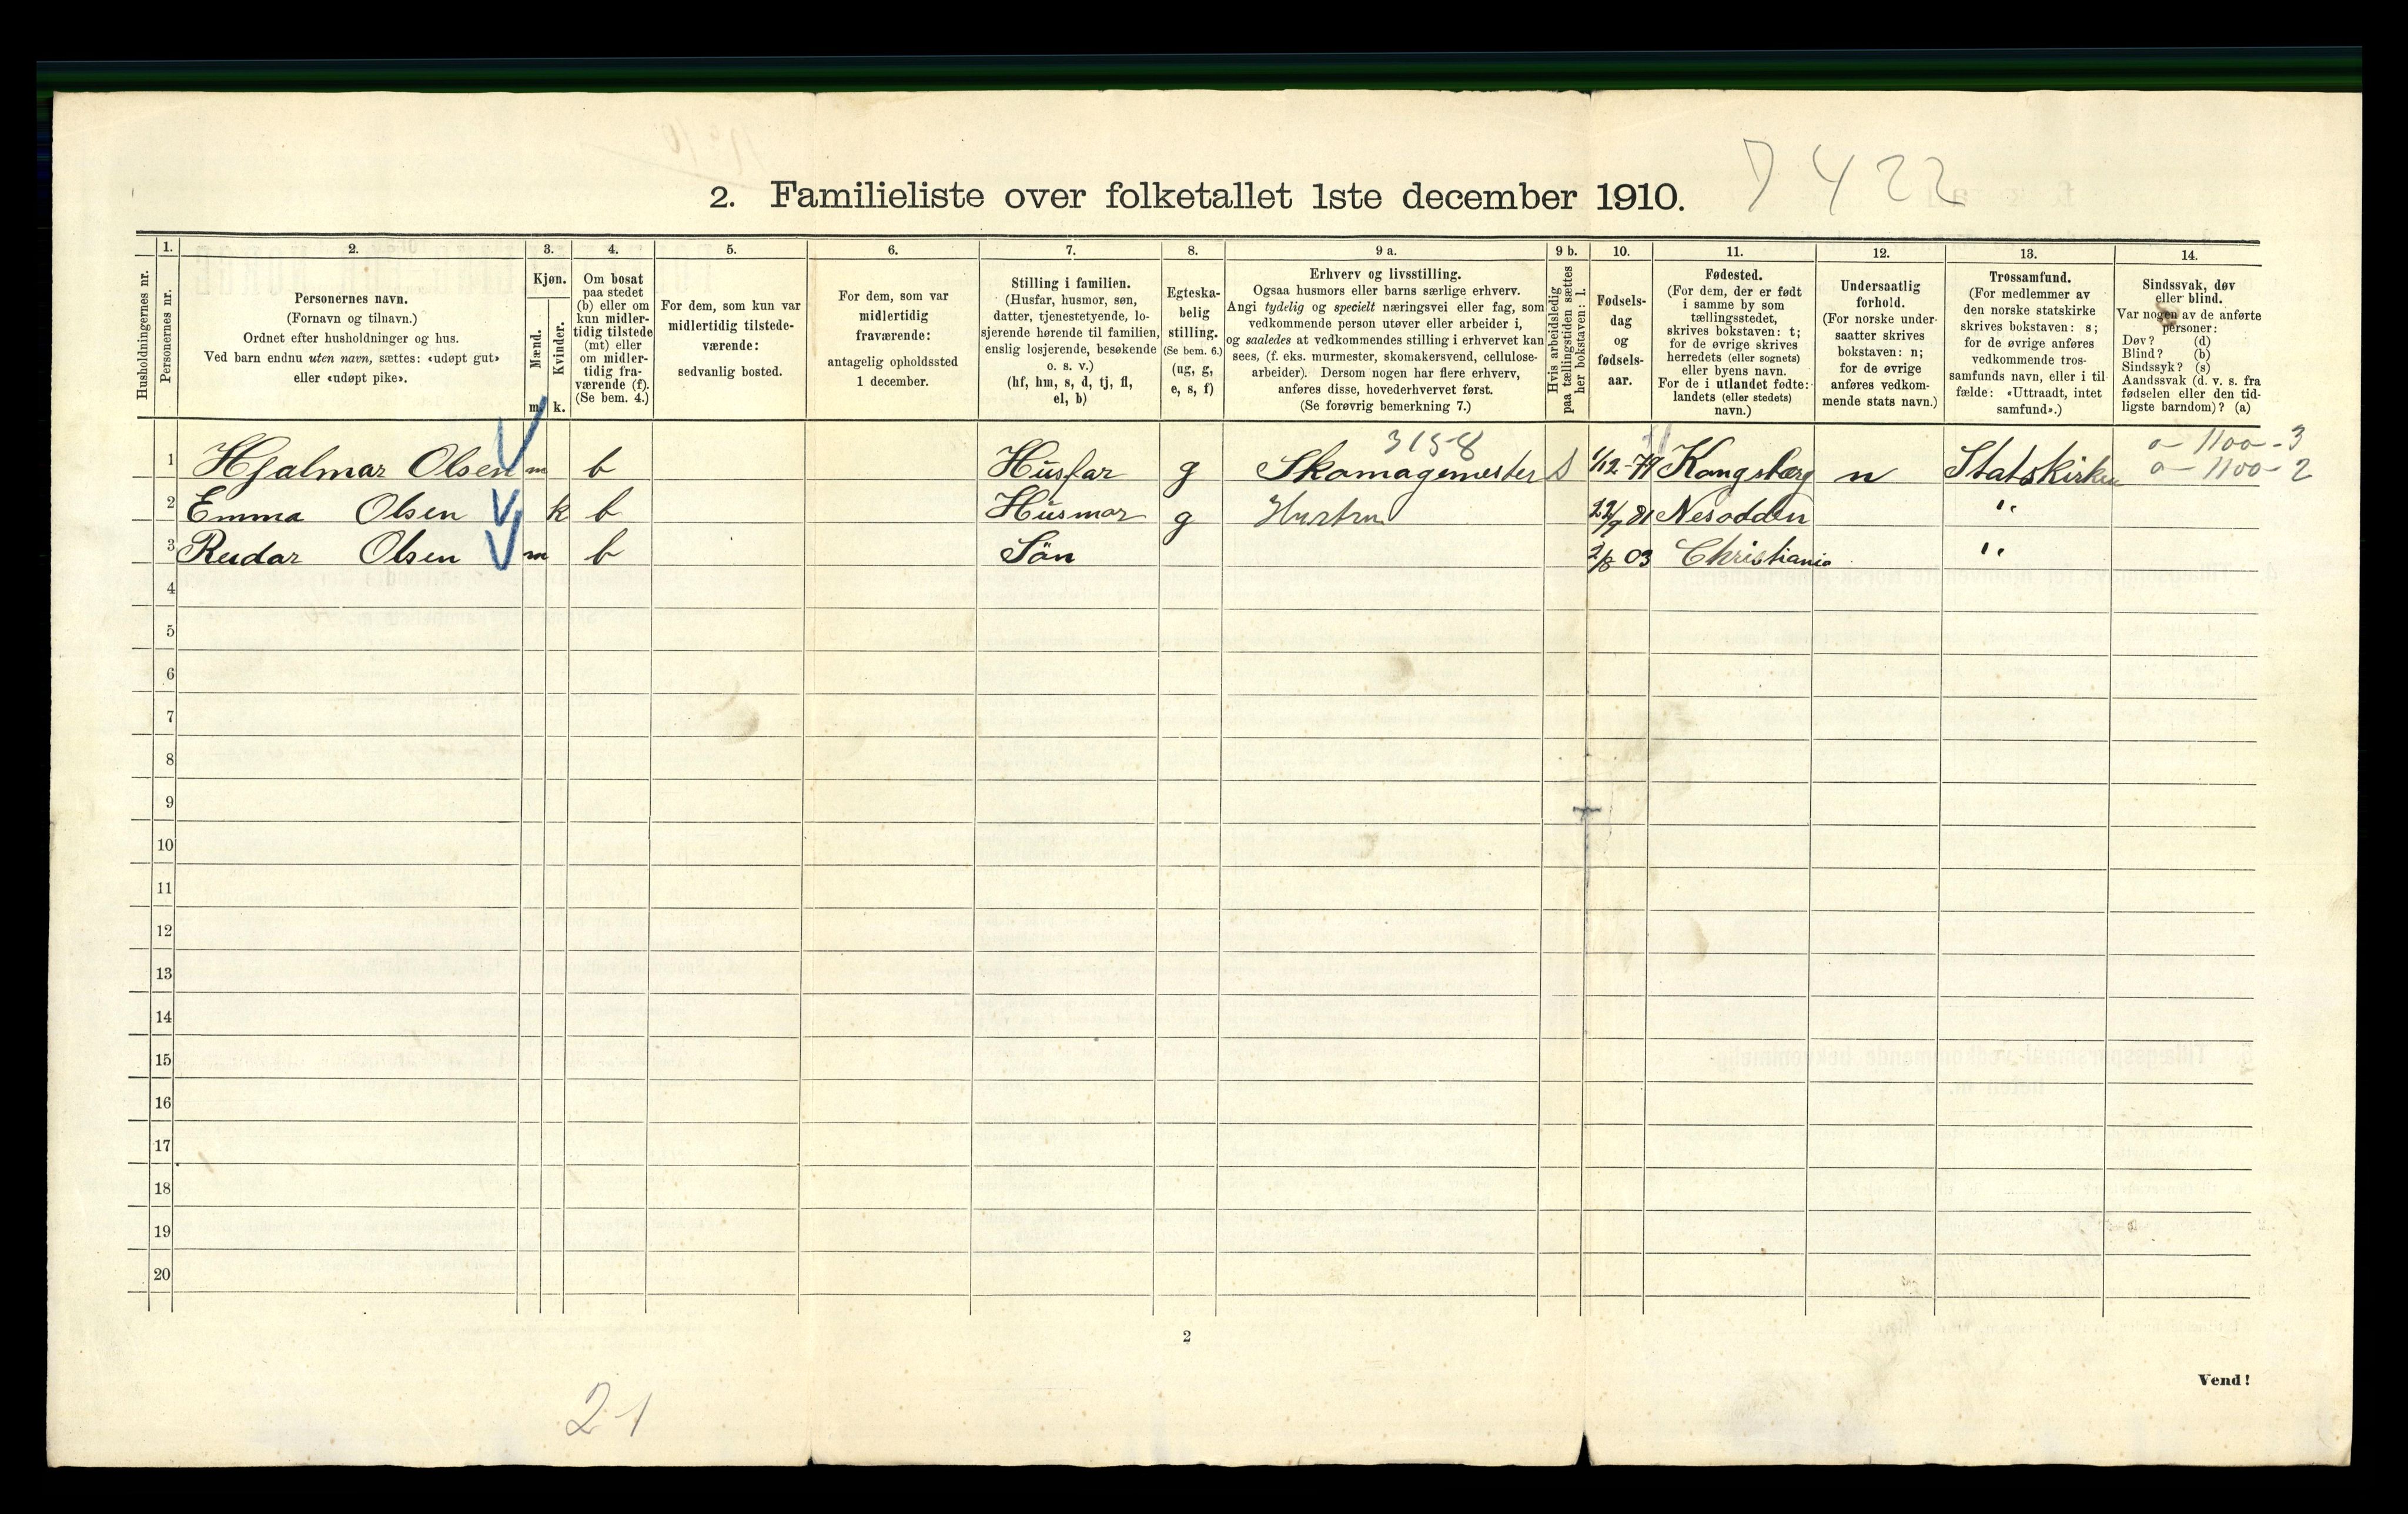 7422
2. Familieliste over folketallet 1ste december 1910.
Husholdningernes nr.
1.
Personernes nr.
2.
Personernes navn.
(Fornavn og tilnavn.)
Ordnet efter husholdninger og hus.
Ved barn endnu uten navn, sættes: «udøpt gut»
eller «udøpt pike».
3.
Kjøn.
Mænd.
Kvinder.
m. k.
4.
Om bosat
paa stedet
(b) eller om
kun midler-
tidig tilstede
(mt) eller
om midler-
tidig fra-
værende (f).
(Se bem. 4.)
5.
For dem, som kun var
midlertidig tilstede-
værende:
sedvanlig bosted.
6.
For dem, som var
midlertidig
fraværende:
antagelig opholdssted
1 december.
7.
Stilling i familien.
(Husfar, husmor, søn,
datter, tjenestetyende, lo-
sjerende hørende til familien,
enslig losjerende, besøkende
o. s. v.)
(hf, hm, s, d, tj, fl,
el, b)
8.
Egteska-
belig
stilling.
(Se bem. 6.)
(ug, g,
e, s, f)
9 a.
Erhverv og livsstilling.
Ogsaa husmors eller barns særlige erhverv.
Angi tydelig og specielt næringsvei eller fag, som
vedkommende person utøver eller arbeider i,
og saaledes at vedkommendes stilling i erhvervet kan
sees, (f. eks. murmester, skomakersvend, cellulose-
arbeider). Dersom nogen har flere erhverv,
anføres disse, hovederhvervet først.
(Se forøvrig bemerkning 7.)
9 b.
Hvis arbeidsledig
paa tællingstiden sættes
her bokstaven: l.
10.
Fødsels-
dag
og
fødsels-
aar.
11.
Fødested.
(For dem, der er født
i samme by som
tællingsstedet,
skrives bokstaven: t;
for de øvrige skrives
herredets (eller sognets)
eller byens navn.
For de i utlandet fødte:
landets (eller stedets)
navn.)
12.
Undersaatlig
forhold.
(For norske under-
saatter skrives
bokstaven: n;
for de øvrige
anføres vedkom-
mende stats navn.)
13.
Trossamfund.
(For medlemmer av
den norske statskirke
skrives bokstaven: s;
for de øvrige anføres
vedkommende tros-
samfunds navn, eller i til-
fælde: «Uttraadt, intet
samfund».)
14.
Sindssvak, døv
eller blind.
Var nogen av de anførte
personer:
Døv? (d)
Blind? (b)
Sindssyk? (s)
Aandssvak (d. v. s. fra
fødselen eller den tid-
ligste barndom)? (a)
3158 0-1100-3
1 Hjalmar Olsen m b Husfar g Skomagemester S 1/12-79 Kongsberg n Statskirken 0-1100-2
2 Emma Olsen k b Husmor g Hustru 22/9 81 Nesodden "
3 Reidar Olsen m b Sön 2/8 03 Christiania "
4
5
6
7
8
9
10
11
12
13
14
15
16
17
18
19
20
2
Vend!
21